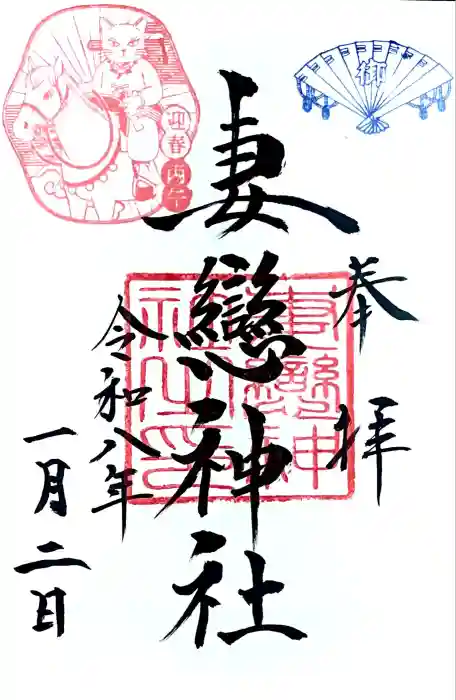 奉拝
御
妻戀神社
妻戀神社之印
迎春
丙午
令和八年
一月二日